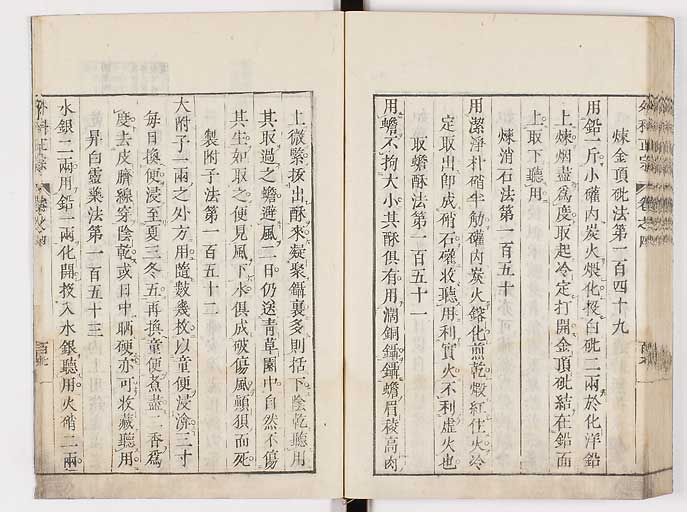 煉金頂砒法第一百四十九
用鉛一斤小礶內炭火煨化投白砒二兩於化洋鉛
上煉烟盡爲度取起冷定打開金頂砒結在鉛面
上取下聽用
煉消石法第一百五十
用潔淨朴硝半觔礶內炭火鎔化煎乾煅紅住火冷
定取出卽成硝石礶收聽用利實火不利虛火也
取蟾酥法第一百五十一
用蟾不拘大小其酥俱有用濶銅鑷鑷蟾眉稜高肉
上微緊拔出酥來凝聚鑷裏多則括下陰乾聽用
其取過之蟾避風二日仍送青草園中自然不傷
其生如取之便見風下水俱成破傷風顛狽而死
製附子法第一百五十二
大附子一兩之外方用隨數幾枚以童便浸淹三寸
每日換便浸至夏三冬五再換童便煮盡二香爲
度去皮臍線穿陰乾或日中晒硬亦可收藏聽用
昇白靈藥法第一百五十三
水銀二兩用鉛一兩化開投入水銀聽用火硝二兩
外科正宗 卷之四